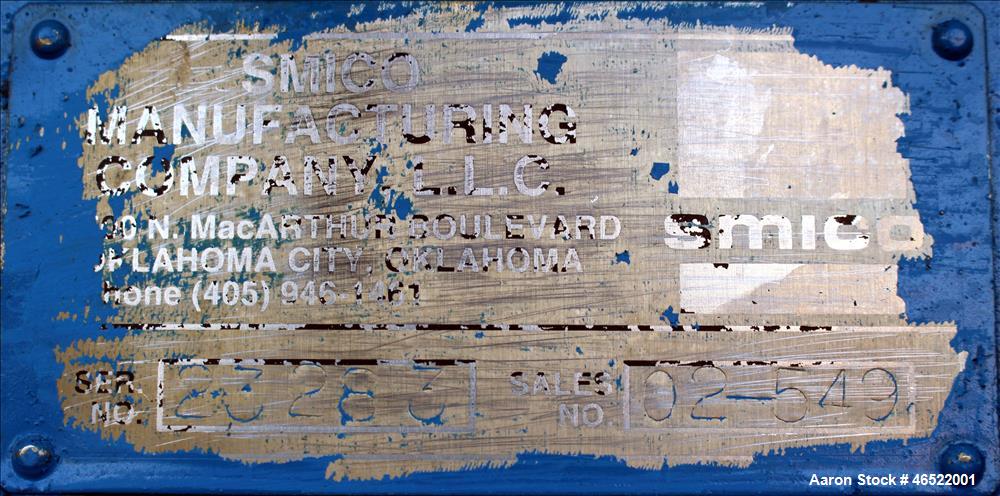 SMICO
MANUFACTURING
COMPANY, L.L.C.
smico
N. MacARTHUR BOULEVARD
OKLAHOMA CITY, OKLAHOMA
Phone (405) 946-1461
SER. NO. 23283
SALES NO. 02-549
Aaron Stock # 46522001